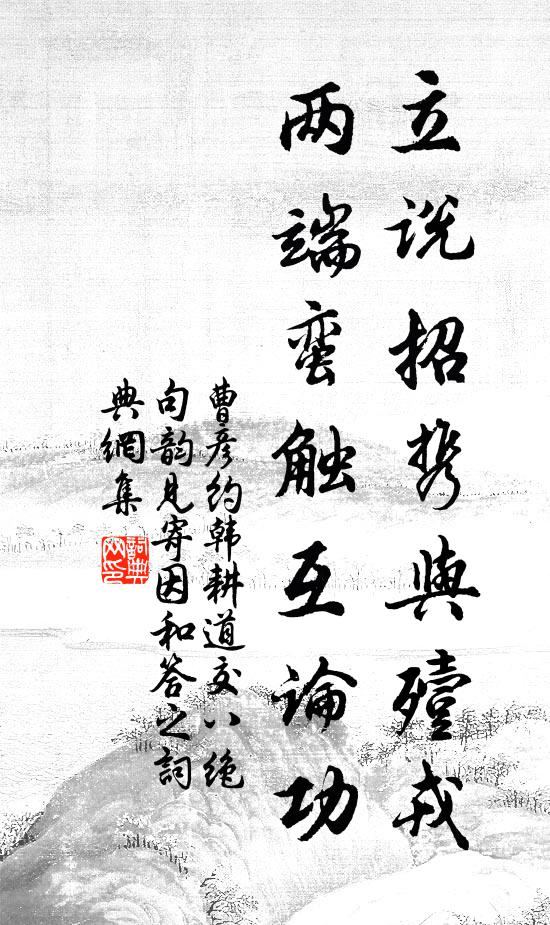 立说招携與殪戎
两端蛮触互論功
曹彦约韩耕道交八绝
句韵见寄因和答之詞
典網集
詞典網印